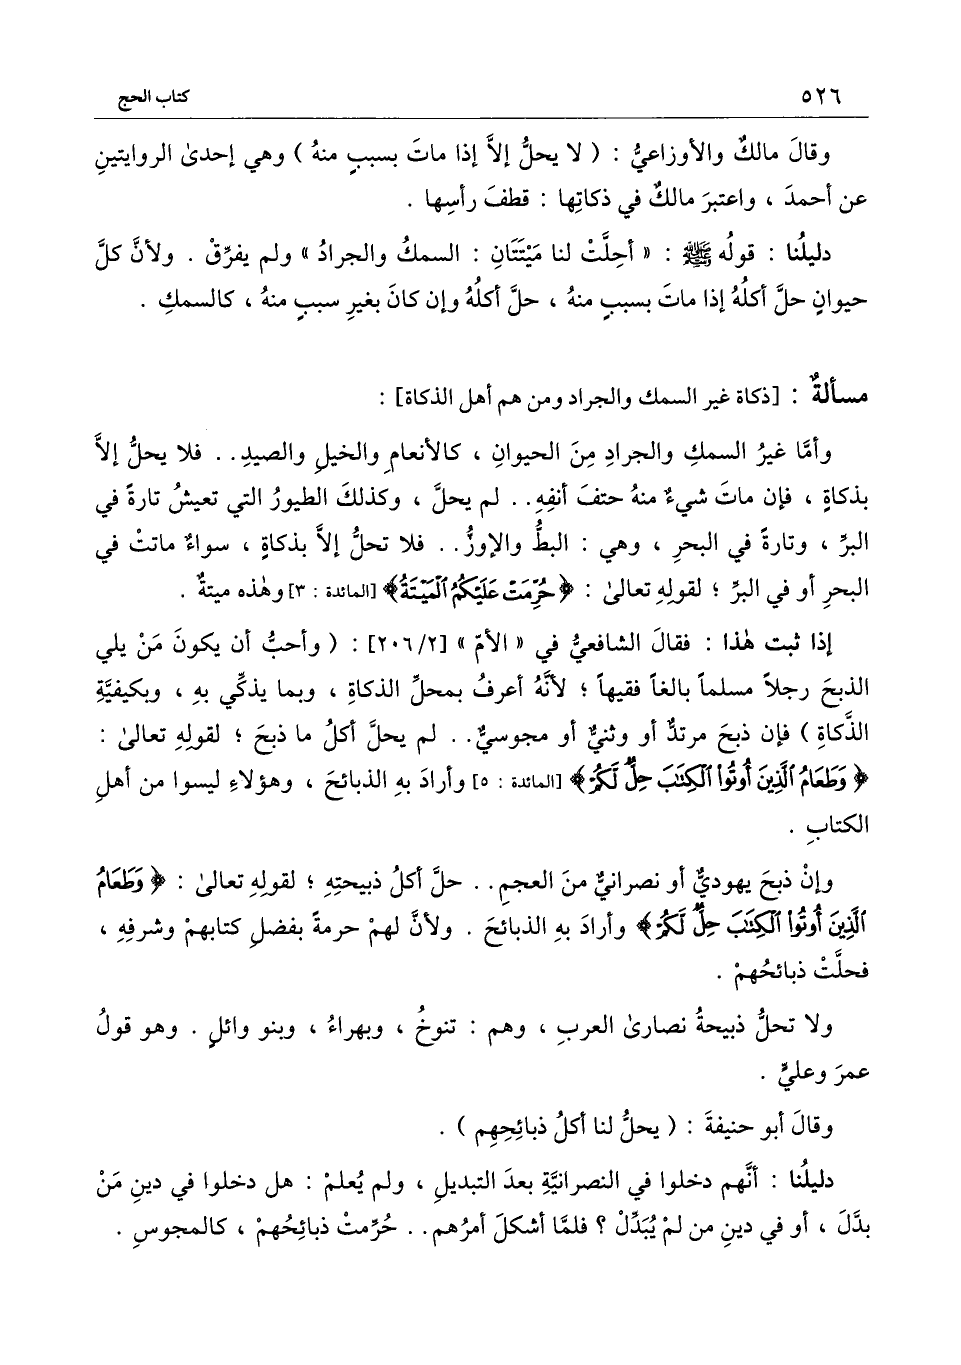 ٥٢٦ كتاب الحج
وقالَ مالكٌ والأوزاعيُّ : ( لا يحلُّ إلاَّ إذا ماتَ بسببٍ منهُ ) وهي إحدىٰ الروايتينِ
عن أحمدَ ، واعتبرَ مالكٌ في ذكاتِها : قطفَ رأسِها .
دليلُنا : قولُه ﷺ : « أحِلَّتْ لنا مَيْتَتَانِ : السمكُ والجرادُ » ولم يفرِّقْ . ولأنَّ كلَّ
حيوانٍ حلَّ أكلُهُ إذا ماتَ بسببٍ منهُ ، حلَّ أكلُهُ وإن كانَ بغيرِ سببٍ منهُ ، كالسمكِ .
مسألةٌ : [ذكاة غير السمك والجراد ومن هم أهل الذكاة] :
وأمَّا غيرُ السمكِ والجرادِ مِنَ الحيوانِ ، كالأنعامِ والخيلِ والصيدِ . . فلا يحلُّ إلاَّ
بذكاةٍ ، فإن ماتَ شيءٌ منهُ حتفَ أنفِهِ . . لم يحلَّ ، وكذلكَ الطيورُ التي تعيشُ تارةً في
البرِّ ، وتارةً في البحرِ ، وهي : البطُّ والإوزُّ . . فلا تحلُّ إلاَّ بذكاةٍ ، سواءٌ ماتتْ في
البحرِ أو في البرِّ ؛ لقولِهِ تعالىٰ : ﴿ حُرِّمَتْ عَلَيْكُمُ ٱلْمَيْتَةُ ﴾ [المائدة : ٣] وهٰذه ميتةٌ .
إذا ثبت هٰذا : فقالَ الشافعيُّ في « الأمّ » [٢٠٦/٢] : ( وأحبُّ أن يكونَ مَنْ يلي
الذبحَ رجلاً مسلماً بالغاً فقيهاً ؛ لأنَّهُ أعرفُ بمحلِّ الذكاةِ ، وبما يذكِّي بهِ ، وبكيفيَّةِ
الذَّكاةِ ) فإن ذبحَ مرتدٌّ أو وثنيٌّ أو مجوسيٌّ . . لم يحلَّ أكلُ ما ذبحَ ؛ لقولِهِ تعالىٰ :
﴿ وَطَعَامُ ٱلَّذِينَ أُوتُوا۟ ٱلْكِتَٰبَ حِلٌّ لَّكُمْ ﴾ [المائدة : ٥] وأرادَ بهِ الذبائحَ ، وهؤلاءِ ليسوا من أهلِ
الكتابِ .
وإنْ ذبحَ يهوديٌّ أو نصرانيٌّ منَ العجمِ . . حلَّ أكلُ ذبيحتِهِ ؛ لقولِهِ تعالىٰ : ﴿ وَطَعَامُ
ٱلَّذِينَ أُوتُوا۟ ٱلْكِتَٰبَ حِلٌّ لَّكُمْ ﴾ وأرادَ بهِ الذبائحَ . ولأنَّ لهمْ حرمةً بفضلِ كتابهمْ وشرفِهِ ،
فحلَّتْ ذبائحُهمْ .
ولا تحلُّ ذبيحةُ نصارىٰ العربِ ، وهم : تنوخُ ، وبهراءُ ، وبنو وائلٍ . وهو قولُ
عمرَ وعليٍّ .
وقالَ أبو حنيفةَ : ( يحلُّ لنا أكلُ ذبائِحِهِم ) .
دليلُنا : أنَّهم دخلوا في النصرانيَّةِ بعدَ التبديلِ ، ولم يُعلمْ : هل دخلوا في دينِ مَنْ
بدَّلَ ، أو في دينِ من لمْ يُبَدِّلْ ؟ فلمَّا أشكلَ أمرُهم . . حُرِّمتْ ذبائِحُهمْ ، كالمجوسِ .